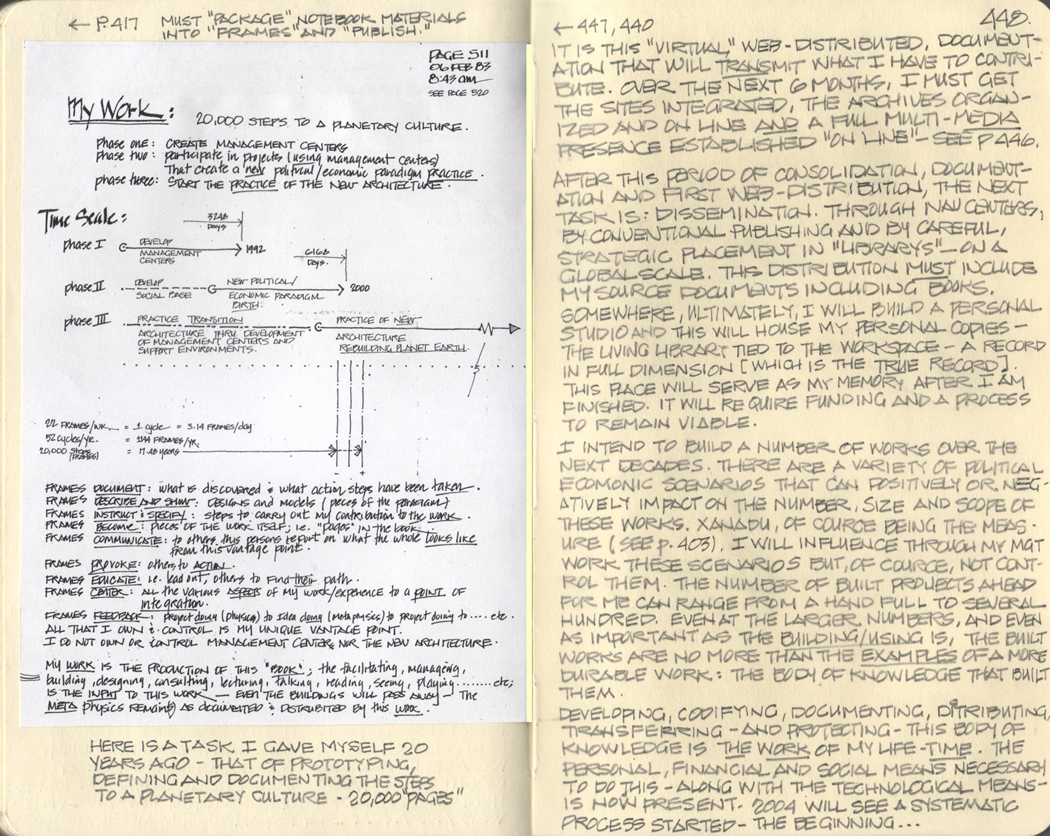 ← P.417 MUST "PACKAGE" NOTEBOOK MATERIALS
INTO "FRAMES" AND "PUBLISH."
PAGE 511
06 FEB 83
8:43 am
SEE PAGE 520
My Work:
20,000 STEPS TO A PLANETARY CULTURE.
phase one: CREATE MANAGEMENT CENTERS
phase two: participate in projects (using management centers)
That create a new political/economic paradigm practice.
phase three: START THE PRACTICE OF THE NEW ARCHITECTURE.
Time Scale:
3248
DAYS
phase I DEVELOP
MANAGEMENT
CENTERS
1992
6168
DAYS.
phase II DEVELOP
SOCIAL BASE
NEW POLITICAL/
ECONOMIC PARADIGM
BIRTH.
2000
phase III PRACTICE TRANSITION
ARCHITECTURE THRU DEVELOPMENT
OF MANAGEMENT CENTERS AND
SUPPORT ENVIRONMENTS.
PRACTICE OF NEW
ARCHITECTURE
REBUILDING PLANET EARTH
22 FRAMES/WK. = 1 cycle = 3.14 FRAMES/day
52 cycles/yr. = 1144 FRAMES/yr.
20,000 STEPS = 17.48 YEARS
(FRAMES)
FRAMES DOCUMENT: what is discovered & what action steps have been taken.
FRAMES DESCRIBE AND SHOW: DESIGNS and models (pieces of the paradigm)
FRAMES INSTRUCT & SPECIFY: steps to carry out my contribution to the work.
FRAMES BECOME: pieces OF THE WORK ITSELF; i.e. "pages" in the book.
FRAMES COMMUNICATE: to others, this persons report on what the whole looks like
from this vantage point.
FRAMES PROVOKE: others, to ACTION.
FRAMES EDUCATE: i.e. lead out, others to find their path.
FRAMES CENTER: all the various ASPECTS of my work/experience to a POINT OF
integration.
FRAMES FEEDBACK: project doing (physics) to idea doing (metaphysics) to project doing to ..... etc.
ALL THAT I OWN & CONTROL IS MY UNIQUE VANTAGE POINT.
I DO NOT OWN OR CONTROL MANAGEMENT CENTERS NOR THE NEW ARCHITECTURE.
MY WORK IS THE PRODUCTION OF THIS "BOOK"; the facilitating, managing,
building, designing, consulting, lecturing, talking, reading, seeing, playing ........ etc;
IS THE INPUT TO THIS WORK — EVEN THE BUILDINGS WILL PASS AWAY — The
META physics REMAINS AS DOCUMENTED & DISTRUBITED by this WORK.
HERE IS A TASK I GAVE MYSELF 20
YEARS AGO - THAT OF PROTOTYPING,
DEFINING AND DOCUMENTING THE STEPS
TO A PLANETARY CULTURE - 20,000 "PAGES"
448.
← 447, 440
IT IS THIS "VIRTUAL" WEB-DISTRIBUTED, DOCUMENT-
ATION THAT WILL TRANSMIT WHAT I HAVE TO CONTRI-
BUTE. OVER THE NEXT 6 MONTHS, I MUST GET
THE SITES INTEGRATED, THE ARCHIVES ORGAN-
IZED AND ON LINE AND A FULL MULTI-MEDIA
PRESENCE ESTABLISHED "ON LINE" - SEE P 446.
AFTER THIS PERIOD OF CONSOLIDATION, DOCUMENT-
ATION AND FIRST WEB-DISTRIBUTION, THE NEXT
TASK IS: DISSEMINATION. THROUGH NAVCENTERS,
BY CONVENTIONAL PUBLISHING AND BY CAREFUL,
STRATEGIC PLACEMENT IN "LIBRARYS" - ON A
GLOBAL SCALE. THIS DISTRIBUTION MUST INCLUDE
MY SOURCE DOCUMENTS INCLUDING BOOKS.
SOMEWHERE, ULTIMATELY, I WILL BUILD A PERSONAL
STUDIO AND THIS WILL HOUSE MY PERSONAL COPIES -
THE LIVING LIBRARY TIED TO THE WORKSPACE - A RECORD
IN FULL DIMENSION [WHICH IS THE TRUE RECORD].
THIS PLACE WILL SERVE AS MY MEMORY AFTER I AM
FINISHED. IT WILL REQUIRE FUNDING AND A PROCESS
TO REMAIN VIABLE.
I INTEND TO BUILD A NUMBER OF WORKS OVER THE
NEXT DECADES. THERE ARE A VARIETY OF POLITICAL
ECOMONIC SCENARIOS THAT CAN POSITIVELY OR NEG-
ATIVELY IMPACT ON THE NUMBER, SIZE AND SCOPE OF
THESE WORKS. XANADU, OF COURCE BEING THE MEAS-
URE (SEE p. 403). I WILL INFLUENCE THROUGH MY MGT
WORK THESE SCENARIOS BUT, OF COURCE, NOT CONT-
ROL THEM. THE NUMBER OF BUILT PROJECTS AHEAD
FOR ME CAN RANGE FROM A HAND FULL TO SEVERAL
HUNDRED. EVEN AT THE LARGER NUMBERS, AND EVEN
AS IMPORTANT AS THE BUILDING/USING IS, THE BUILT
WORKS ARE NO MORE THAN THE EXAMPLES OF A MORE
DURABLE WORK: THE BODY OF KNOWLEDGE THAT BUILT
THEM.
DEVELOPING, CODIFYING, DOCUMENTING, DITRIBUTING,
TRANSFERRING - AND PROTECTING - THIS BODY OF
KNOWLEDGE IS THE WORK OF MY LIFE-TIME. THE
PERSONAL, FINANCIAL AND SOCIAL MEANS NECESSARY
TO DO THIS - ALONG WITH THE TECHNOLOGICAL MEANS -
IS NOW PRESENT. 2004 WILL SEE A SYSTEMATIC
PROCESS STARTED - THE BEGINNING...